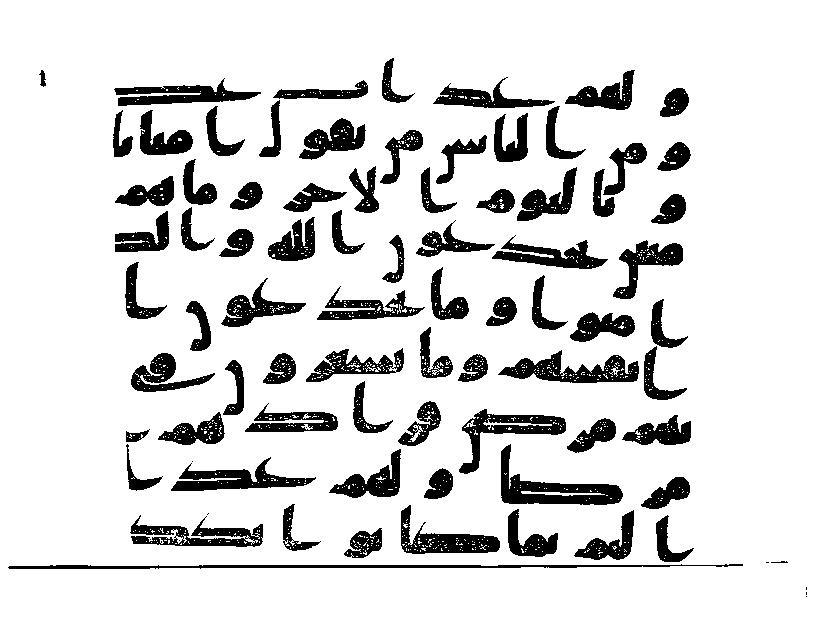 و لهم عذاب عظ
و من الناس من يقول امنا با
و باليوم الاخر وما هم
منين يخدعون الله والذ
امنوا وما يخدعون ا
انفسهم وما يشعرون في
بهم مرض فزادهم
مرضا ولهم عذا
اليم بما كانوا يكذ